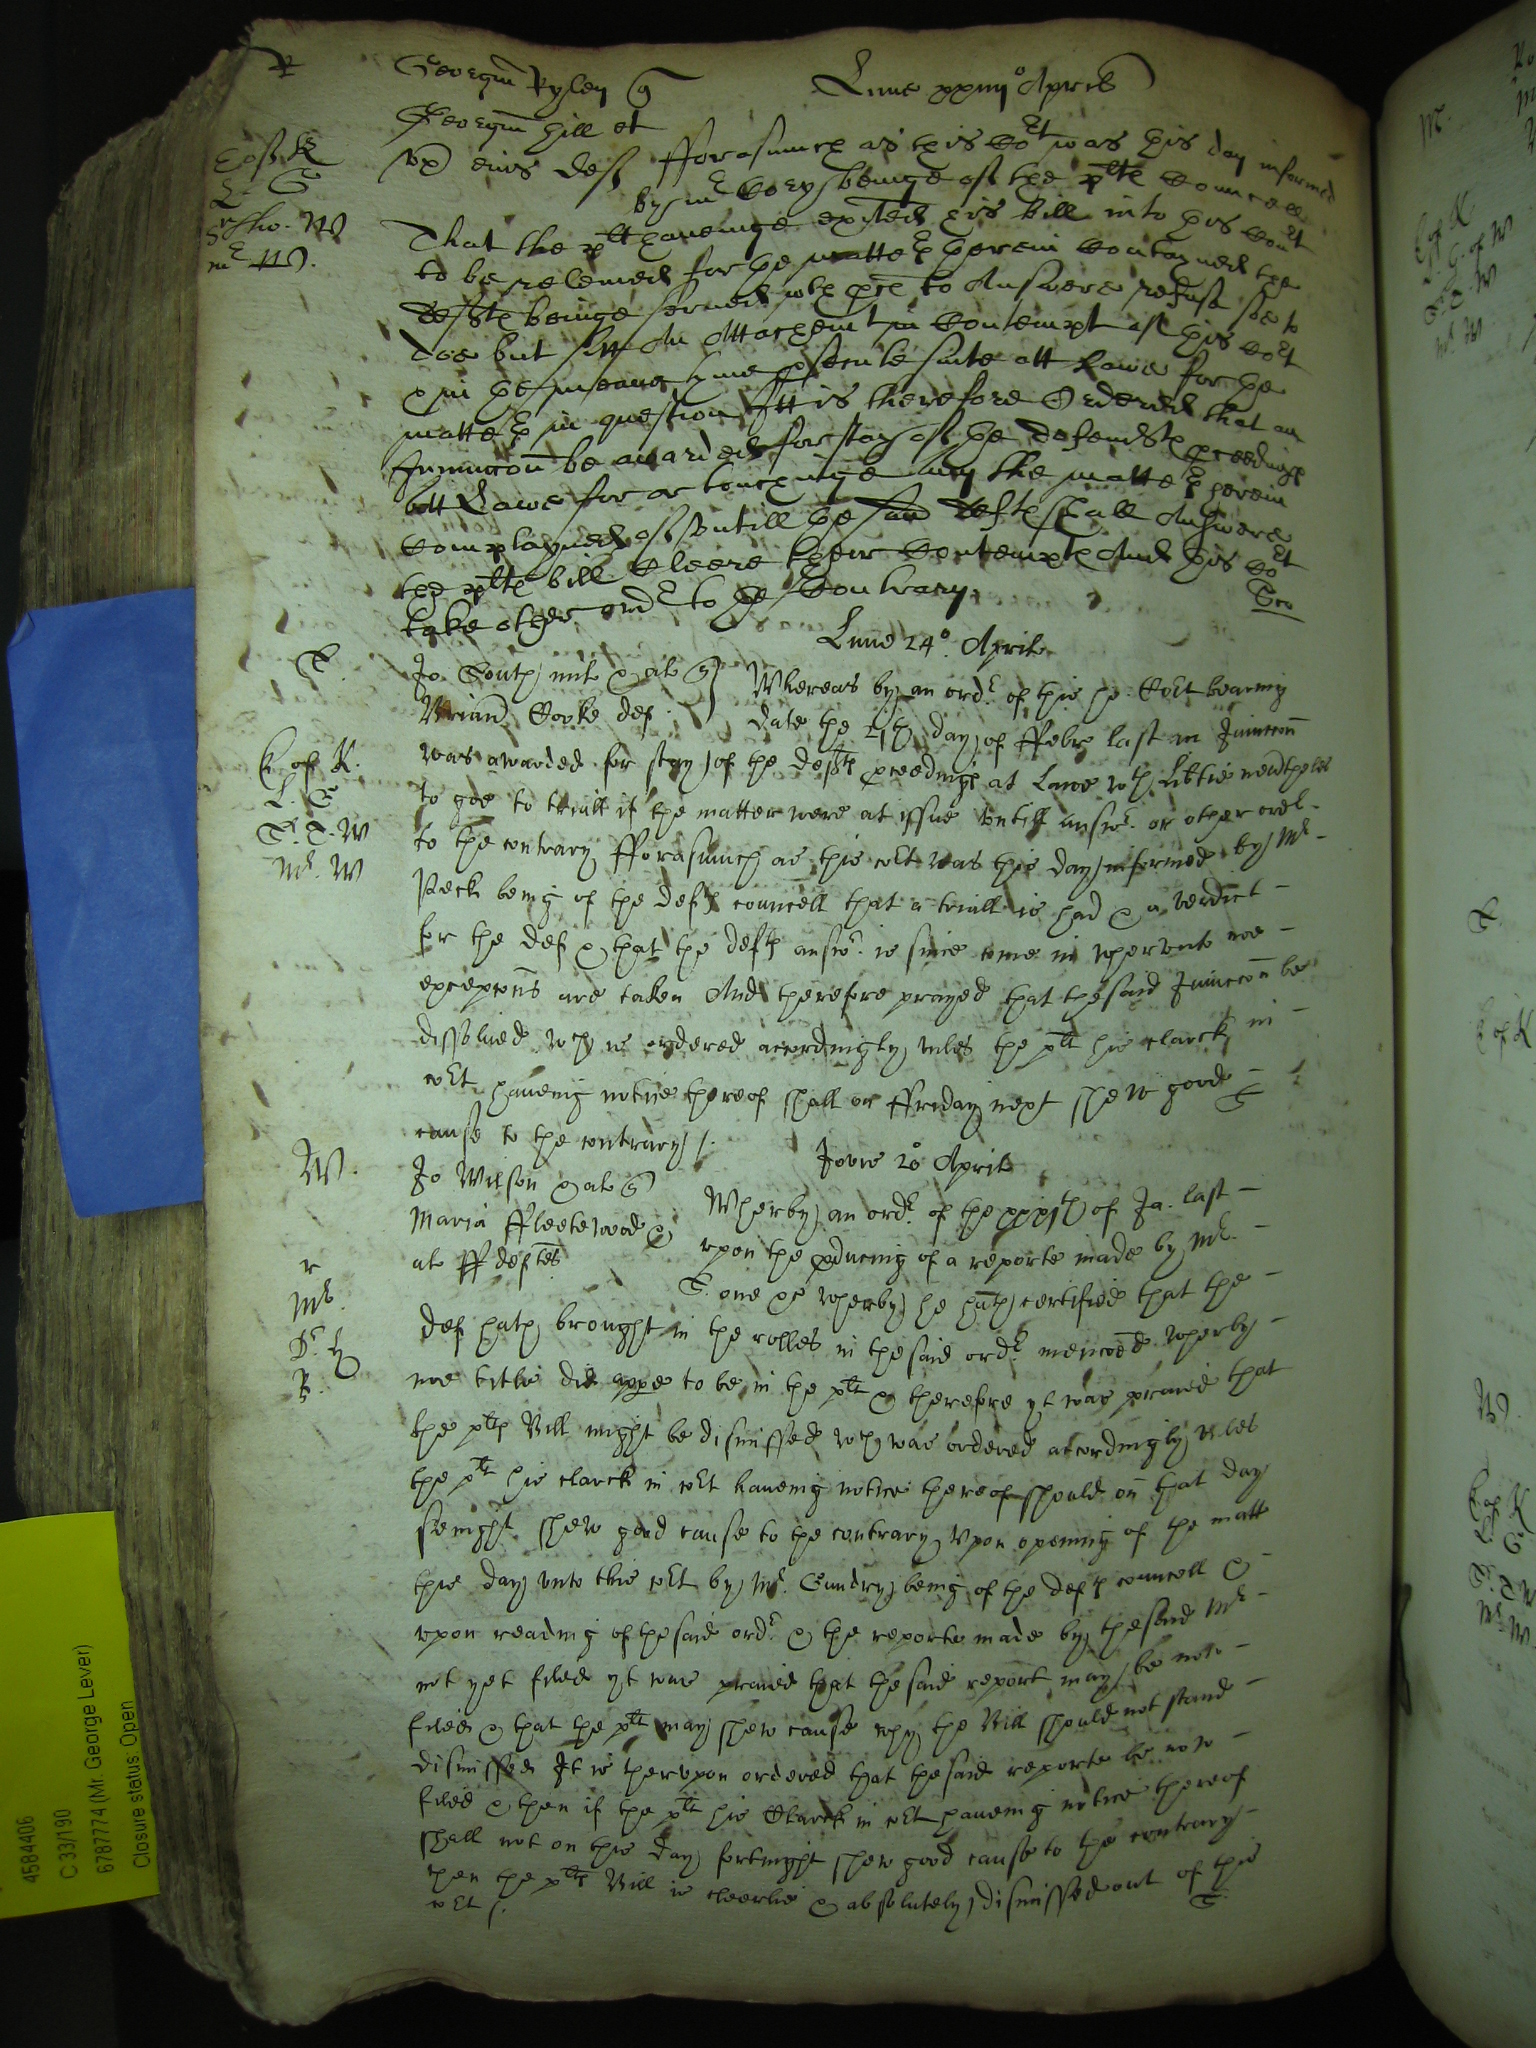 R
Georgiu Ryley q Lune xxiiij° Aprilis
Georgiu Hill et
vx eius def fforasmuch as this Cort was this day informed
by mr being of the plts Councell
That the plt haveinge exhited his Bill into this Cort
to be releived for the matters herein Contayned the
defts beinge served wth pces to Answere refuse soe to
doe but sitt An Attachemt in Contempt of this Cort
in the meane tyme psecute suite att Lawe for the
matters in question Itt is therefore Ordered that an
Iniunccon be awarded for stay of the defendts proceedings
att Lawe for or touchinge any the matters herein
Complayned of untill the said Defts shall Answere
the plts bill Cleere their Contempts And this Cort
take other ordr to the Contrary
Lune 24° Aprilis
Jo South mil & al q Whereas by an ordr of this ho: Cort bearing
Briand Cooke def date the day of ffebr last an Iniunccon
was awarded for stay of the defts pceedings at Lawe wth Libtie neverthelesse
to goe to triall if the matter were at issue untill answr or other ordr
to the contrary fforasmuch as this cort was this day informed by Mr
Peck being of the defts councell that a triall is had & a verdict
for the def & that the defts answr is since come in wherunto noe
excepcons are taken And therefore prayed that the said Iniunccon be
dissolued wch is ordered accordingly unles the plt his clarck in
cort haveing notice thereof shall on ffriday next shew good
cause to the contrary
Jovis 20 Aprilis
Jo Wilson & al q Wherby an ordr of the of Ja. last
Maria ffleetewood & upon the pducing of a reporte made by Mr
al defts one & wherby he hath certified that the
def hath brought in the rolles in the said ordr mencoed wherby
noe title did appe to be in the plt & therefore yt was praied that
the plts Bill might be dismissed wch was ordered accordingly unles
the plt his clarck in cort haveing notice thereof should on that day
sevnight shew good cause to the contrary Upon opening of the matt
this day unto this cort by Mr. Gundry being of the defts councell &
upon reading of the said ordr & the reporte made by the said Mr
not yet filed yt was praied that the said report may be now
filed & that the plt may shew cause why the Bill should not stand
dismissed It is therupon ordered that the said reporte be now
filed & then if the plt his Clarck in cort haveing notice thereof
shall not on this day fortnight shew good cause to the contrary
then the plts Bill is cleerlie & absolutely dismissed out of this
cort
4584406
C 33/190
6787774 (Mr. George Lever)
Closure status: Open